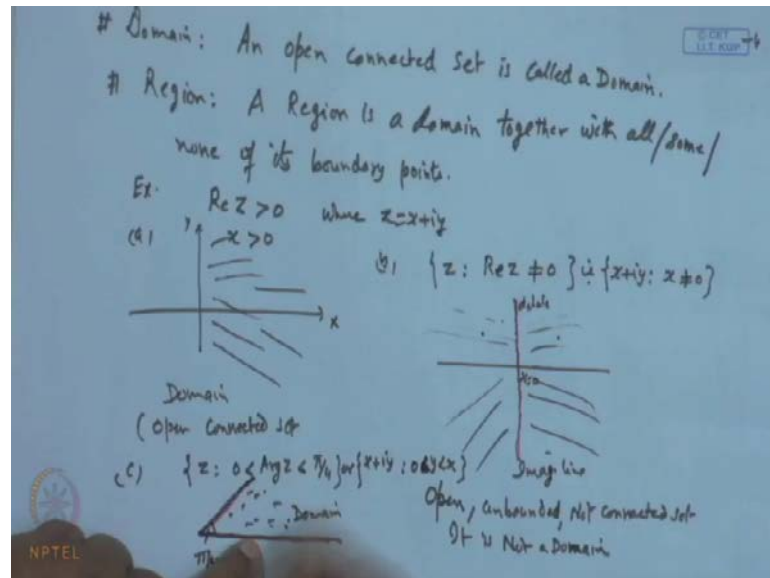 # Domain: An open connected set is called a Domain.
© CET
I.I.T. KGP
# Region: A Region is a domain together with all/some/
none of its boundary points.
Ex. Re z > 0 where z = x+iy
(a) y x > 0
x
Domain
(Open Connected set
(b) {z : Re z ≠ 0} i.e. {x+iy : x ≠ 0}
delete
x=0
Imag line
Open, unbounded, Not connected set
It is Not a Domain
(c) {z : 0 < Arg z < π/4} or {x+iy : 0<y<x}
Domain
π/4
NPTEL